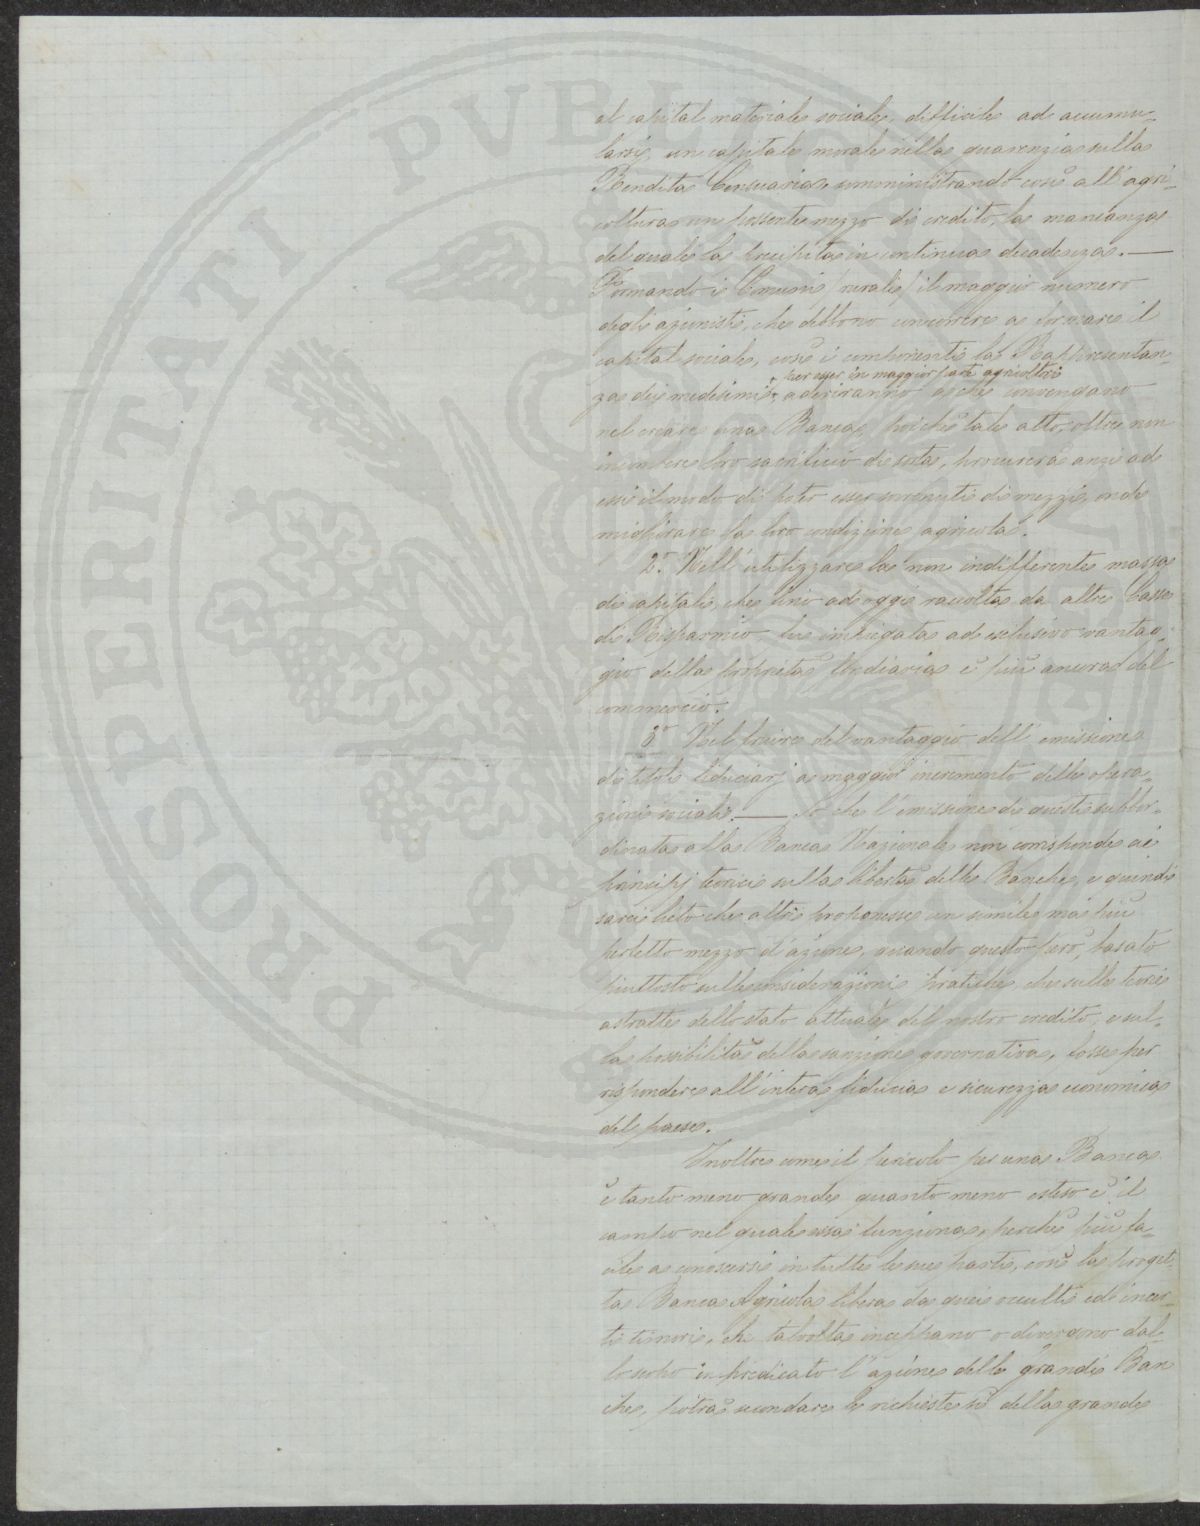 al capital materiale sociale, difficile ad accumu-
larsi, un capitale morale nella guarenzia sulla
Rendita Censuaria, somministrando così all'agri-
coltura un possente mezzo di credito, la mancanza
del quale la precipita in continua decadenza. —
Formando i Comuni rurali il maggior numero
degli azionisti, che debbono concorrere a formare il
capital sociale, così i componenti la Rappresentan-
per esser in maggior parte agricoltori
za dei medesimi, aderiranno a che convengano
nel creare una Banca, poichè tale atto, oltre non
incombere loro sacrificio di sorta, procurerà anzi ad
essi il modo di poter esser sovvenuti di mezzi, onde
migliorare la loro condizione agricola.
2.° Nell'utilizzare la non indifferente massa
di capitali, che fino ad oggi raccolta da altre Casse
di Risparmio fu impiegata ad esclusivo vantag-
gio della proprietà fondiaria e più ancora del
commercio.
3.° Nel fruire del vantaggio dell'emissione
di titoli fiduciarj a maggior incremento delle opera-
zioni sociali. — So che l'emissione di questi subbor-
dinata alla Banca Nazionale non corrisponde ai
principj teorici sulla libertà delle Banche, e quindi
sarei lieto che altri proponesse un simile ma più
perfetto mezzo d'azione, quando questo però, basato
piuttosto sulle considerazioni pratiche, che sulle teorie
astratte dello stato attuale del nostro credito, e sul-
la possibilità della sanzione governativa, fosse per
rispondere all'intera fiducia e sicurezza economica
del paese.
Inoltre come il pericolo per una Banca
è tanto meno grande quanto meno esteso è il
campo nel quale essa funziona, perchè più fa-
cile a conoscersi in tutte le sue parti, così la proget-
ta Banca Agricola libera da quei occulti ed incer-
ti timori, che talvolta inceppano o divergono dal-
lo scopo in predicato l'azione delle grandi Ban
che, potrà secondare le richieste sì della grande